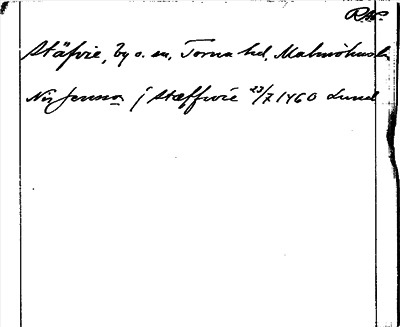 RAP.
Stäfvie, by o. sn, Torna hd, Malmöhusl
Nis Jenssø j Stæffwie 23/7 1460 Lund